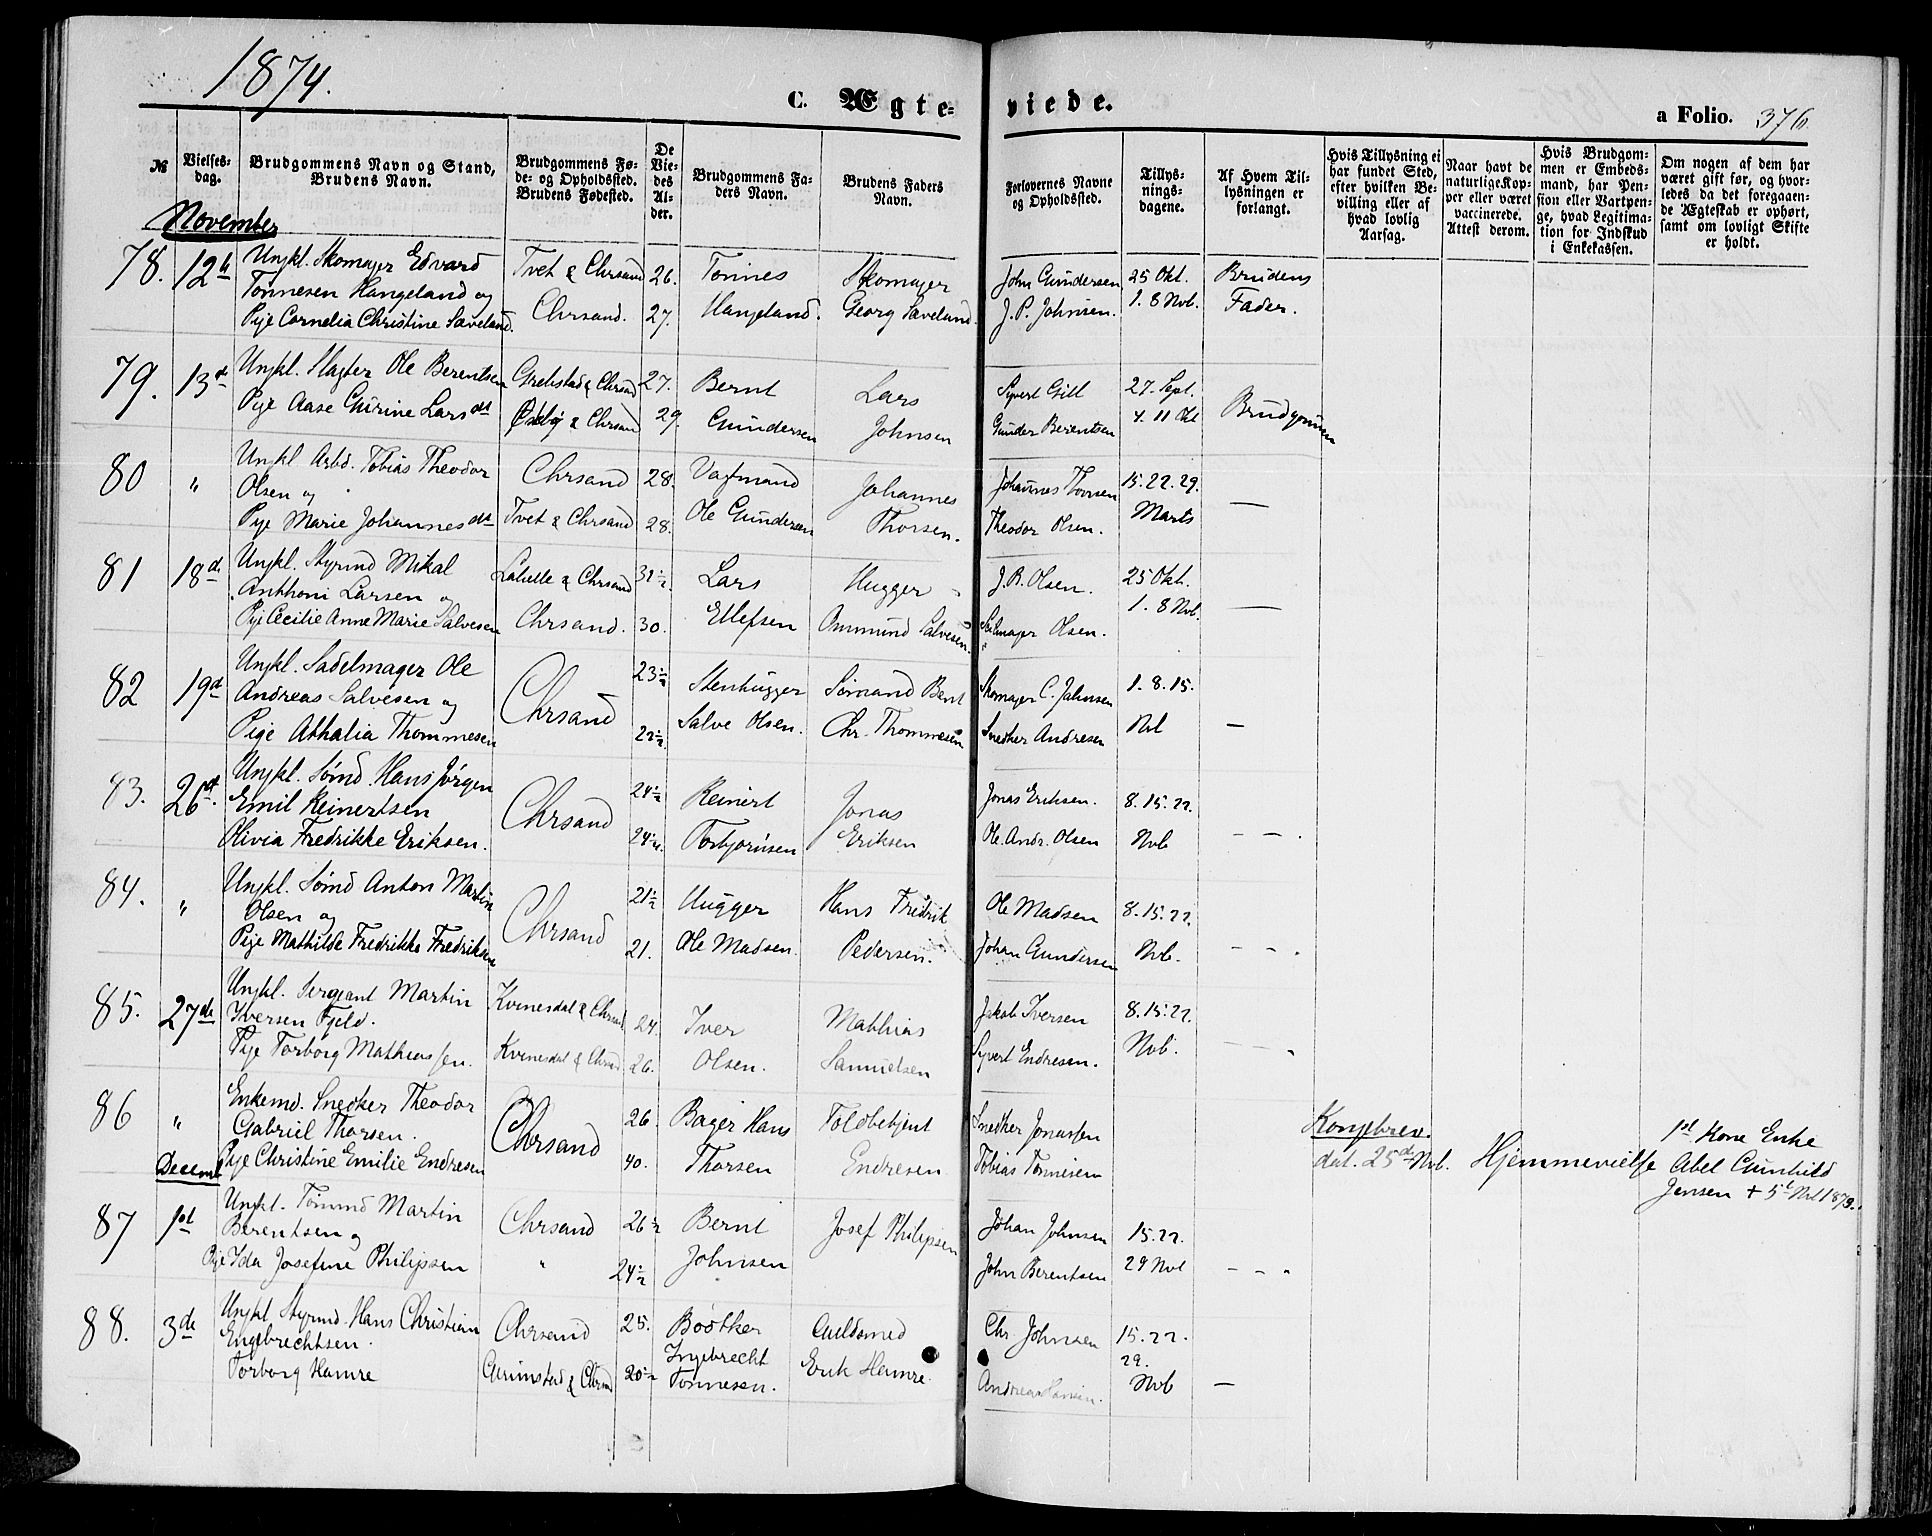 1874.
C. Ægteviede.
a Folio. 376.
№
Vielses-
dag.
Brudgommens Navn og Stand,
Brudens Navn.
Brudgommens Fø-
de- og Opholdssted.
Brudens Fødested.
De
Vie-
des
Al-
der.
Brudgommens Fa-
ders Navn.
Brudens Faders
Navn.
Forlovernes Navne
og Opholdssted.
Tillys-
nings-
dagene.
Af Hvem Til-
lysningen er
forlangt.
Hvis Tillysning ei
har fundet Sted,
efter hvilken Be-
villing eller af
hvad lovlig
Aarsag.
Naar havt de
naturlige Kop-
per eller været
vaccinerede.
Attest derom.
Hvis Brudgom-
men er Embeds-
mand, har Pen-
sion eller Vartpen-
ge, hvad Legitima-
tion for Indskud
i Enkekassen.
Om nogen af dem har
været gift før, og hvor-
ledes da det foregaaen-
de Ægteskab er ophørt,
samt om lovligt Skifte
er holdt.
November
78. 12te Ungkl. Skomager Edvard
Tønnesen Hangeland og
Pige Cornelia Christine Saveland.
Tvet & Chrsand
Chrsand.
26.
27.
Tønnes
Hangeland.
Skomager
Georg Saveland.
John Gundersen
J. P. Johnsen.
25 Okt.
1. 8 Nvb.
Brudens
Fader.
79. 13d Ungkl. Slagter Ole Berentsen
Pige Aase Gurine Larsdt
Chrsand
& Chrsand
27.
29.
Bernt
Gundersen
Lars
Johnsen
Syvert Gill
Gunder Berentsen
27. Sept.
4. 11 Okt
Brudgommen
80 " Ungkl Arbd. Tobias Theodor
Olsen og
Pige Marie Johannesdt
Chrsand
Tvet & Chrsand
28.
28.
Vagtmand
Ole Gundersen
Johannes
Thorsen.
Johannes Thorsen
Theodor Olsen.
15. 22. 29.
Marts
—
81 18d Ungkl. Styrmd Mikal
Anthoni Larsen og
Pige Cecilie Anne Marie Salvesen
& Chrsand
Chrsand.
31½
30.
Lars
Ellefsen
Hugger
Ommund Salvesen.
J. B. Olsen.
Seilmager Olsen.
25 Okt.
1. 8 Nvb.
—
82 19d Ungkl. Sadelmager Ole
Andreas Salvesen og
Pige Athalia Thommesen
Chrsand
23½
22½
Stenhugger
Salve Olsen.
Sømand Bent
Chr. Thommesen
Skomager C. Johnsen
Snedker Andresen
1. 8. 15.
Nvb
—
83. 26d. Ungkl. Sømd. Hans Jørgen
Emil Reinertsen
Olivia Fredrikke Eriksen.
Chrsand
24½
24¼.
Reinert
Torbjørnsen
Jonas
Eriksen
Jonas Eriksen.
Ole Andr. Olsen
8. 15. 22.
Nvb
— — .
84. " Ungkl. Sømd Anton Martin
Olsen og
Pige Mathilde Fredrikke Fredriksen
Chrsand
21½
21.
Hugger
Ole Madsen.
Hans Fredrik
Pedersen.
Ole Madsen
Johan Gundersen
8. 15. 22.
Nvb.
— — .
85. 27de Ungkl. Sergeant Martin
Iversen Fjeld.
Pige Torborg Mathiassen.
Kvinesdal & Chrsand.
Kvinesdal & Chrsand.
24.
26.
Iver
Olsen.
Mathias
Samuelsen
Jakob Iversen
Syvert Endresen.
8. 15. 22.
Nvb.
— — .
86 " Enkemd. Snedker Theodor
Gabriel Thorsen.
Pige Christine Emilie Endresen
Chrsand
26
40.
Bager Hans
Thorsen
Toldbetjent
Endresen
Snedker Jonassen
Tobias Tønnesen
Kongebrev.
dat. 25d Nvb.
Hjemmevielse
1st Kone Enke
Abel Gunhild
Jensen + 5t Nvb 1873.
Decemb
87 1st Ungkl. Tømmd Martin
Berentsen og
Pige Ida Josefine Philipsen
Chrsand
"
26½
24½
Bernt
Johnsen
Josef Philipsen
Johan Johnsen
John Berentsen
15. 22.
29 Nvb
— — .
88. 3de Ungkl Styrmd. Hans Christian
Engebrechtsen.
Torborg Hamre
Chrsand
Grimstad & Chrsand
25.
20½
Bødker
Ingebrecht
Tønnesen.
Guldsmed
Erik Hamre.
Chr Johnsen
Andreas Hansen.
15. 22.
29.
Nvb
—